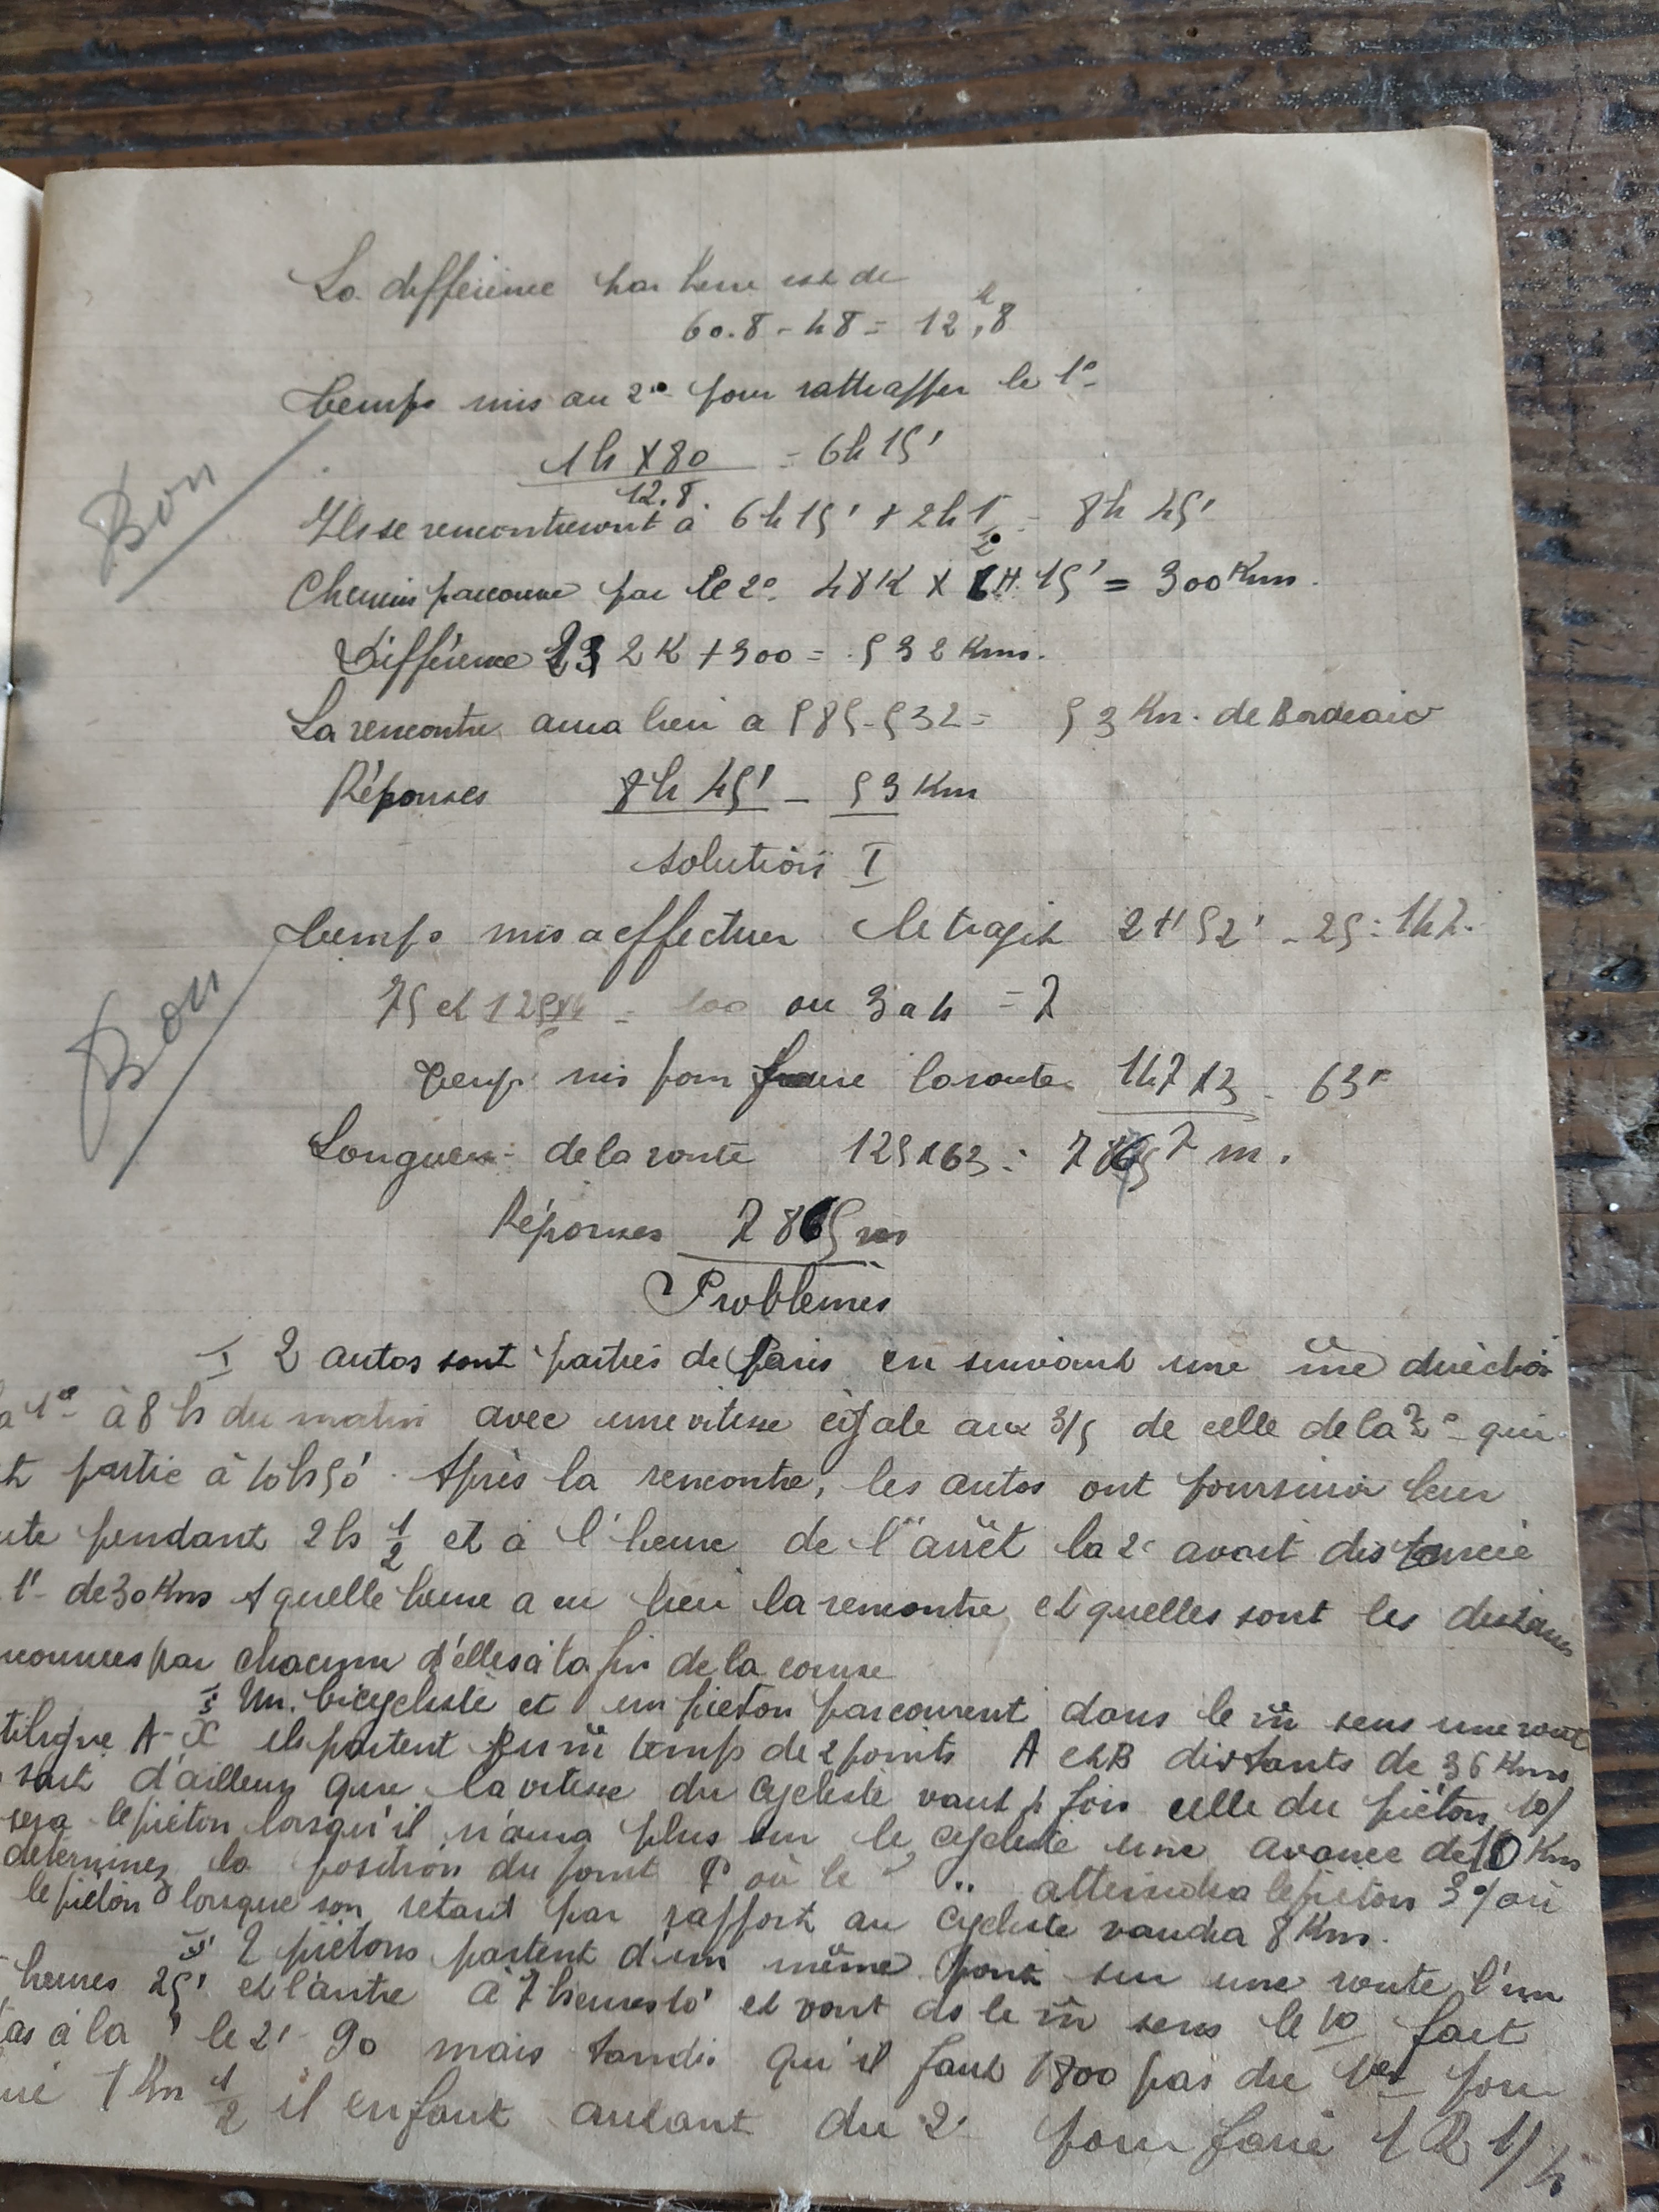 La différence par heure est de
60.8 - 48 = 12,8
temps mis au 2e pour rattrapper le 1e
1h x 80 / 12.8 = 6h 15'
Bon
Ils se rencontreront à 6h 15' + 2h 1/2 = 8h 45'
Chemin parcouru par le 2e 48K x 6H 15' = 300 Kms.
Différence 232K + 300 = 532 Kms.
La rencontre aura lieu a 585 - 532 = 53 Km. de Bordeaux
Réponses 8h 45' - 53 Km
Solution I
temps mis a effectuer le trajet 2H 52' - 25 = 147
Bon
75 et 125 = ou 3 a 4 = 7
temps mis pour faire la route 147 x 3 = 63
Longueur de la route 125 x 63 = m.
Réponses 7865 m
Problèmes
I 2 autos sont parties de Paris en suivant une me direction
1e à 8 h du matin avec une vitesse égale aux 3/5 de celle de la 2e qui
partie à 10h50'. Après la rencontre, les autos ont poursuivi leur
pendant 2h 1/2 et à l'heure de l'arrêt la 2e avait distancié
1e de 30 Kms A quelle heure a eu lieu la rencontre et quelles sont les distances
par chacune d'elles à la fin de la course
Un bicycliste et un piéton parcourent dans le m sens une rout
A-X ils partent en m temps de 2 points A et B distants de 36 Kms
d'ailleurs que la vitesse du cycliste vaut 4 fois celle du piéton 1o/
sera le piéton lorsqu'il n'aura plus sur le cycliste une avance de 10 Km
determinez la position du point P où le " atteindra le piéton 3o/ où
le piéton lorsque son retard par rapport au cycliste vaudra 8 Kms.
2 piétons partent d'un même point sur une route l'un
heures 25' et l'autre à 7 heures 10' et vont ds le m sens le 1o fait
à la " le 2e 90 mais tandis qu'il faut 1800 pas du 1er pour
1 Km 1/2 il en faut autant du 2e pour faire 1 K 1/4